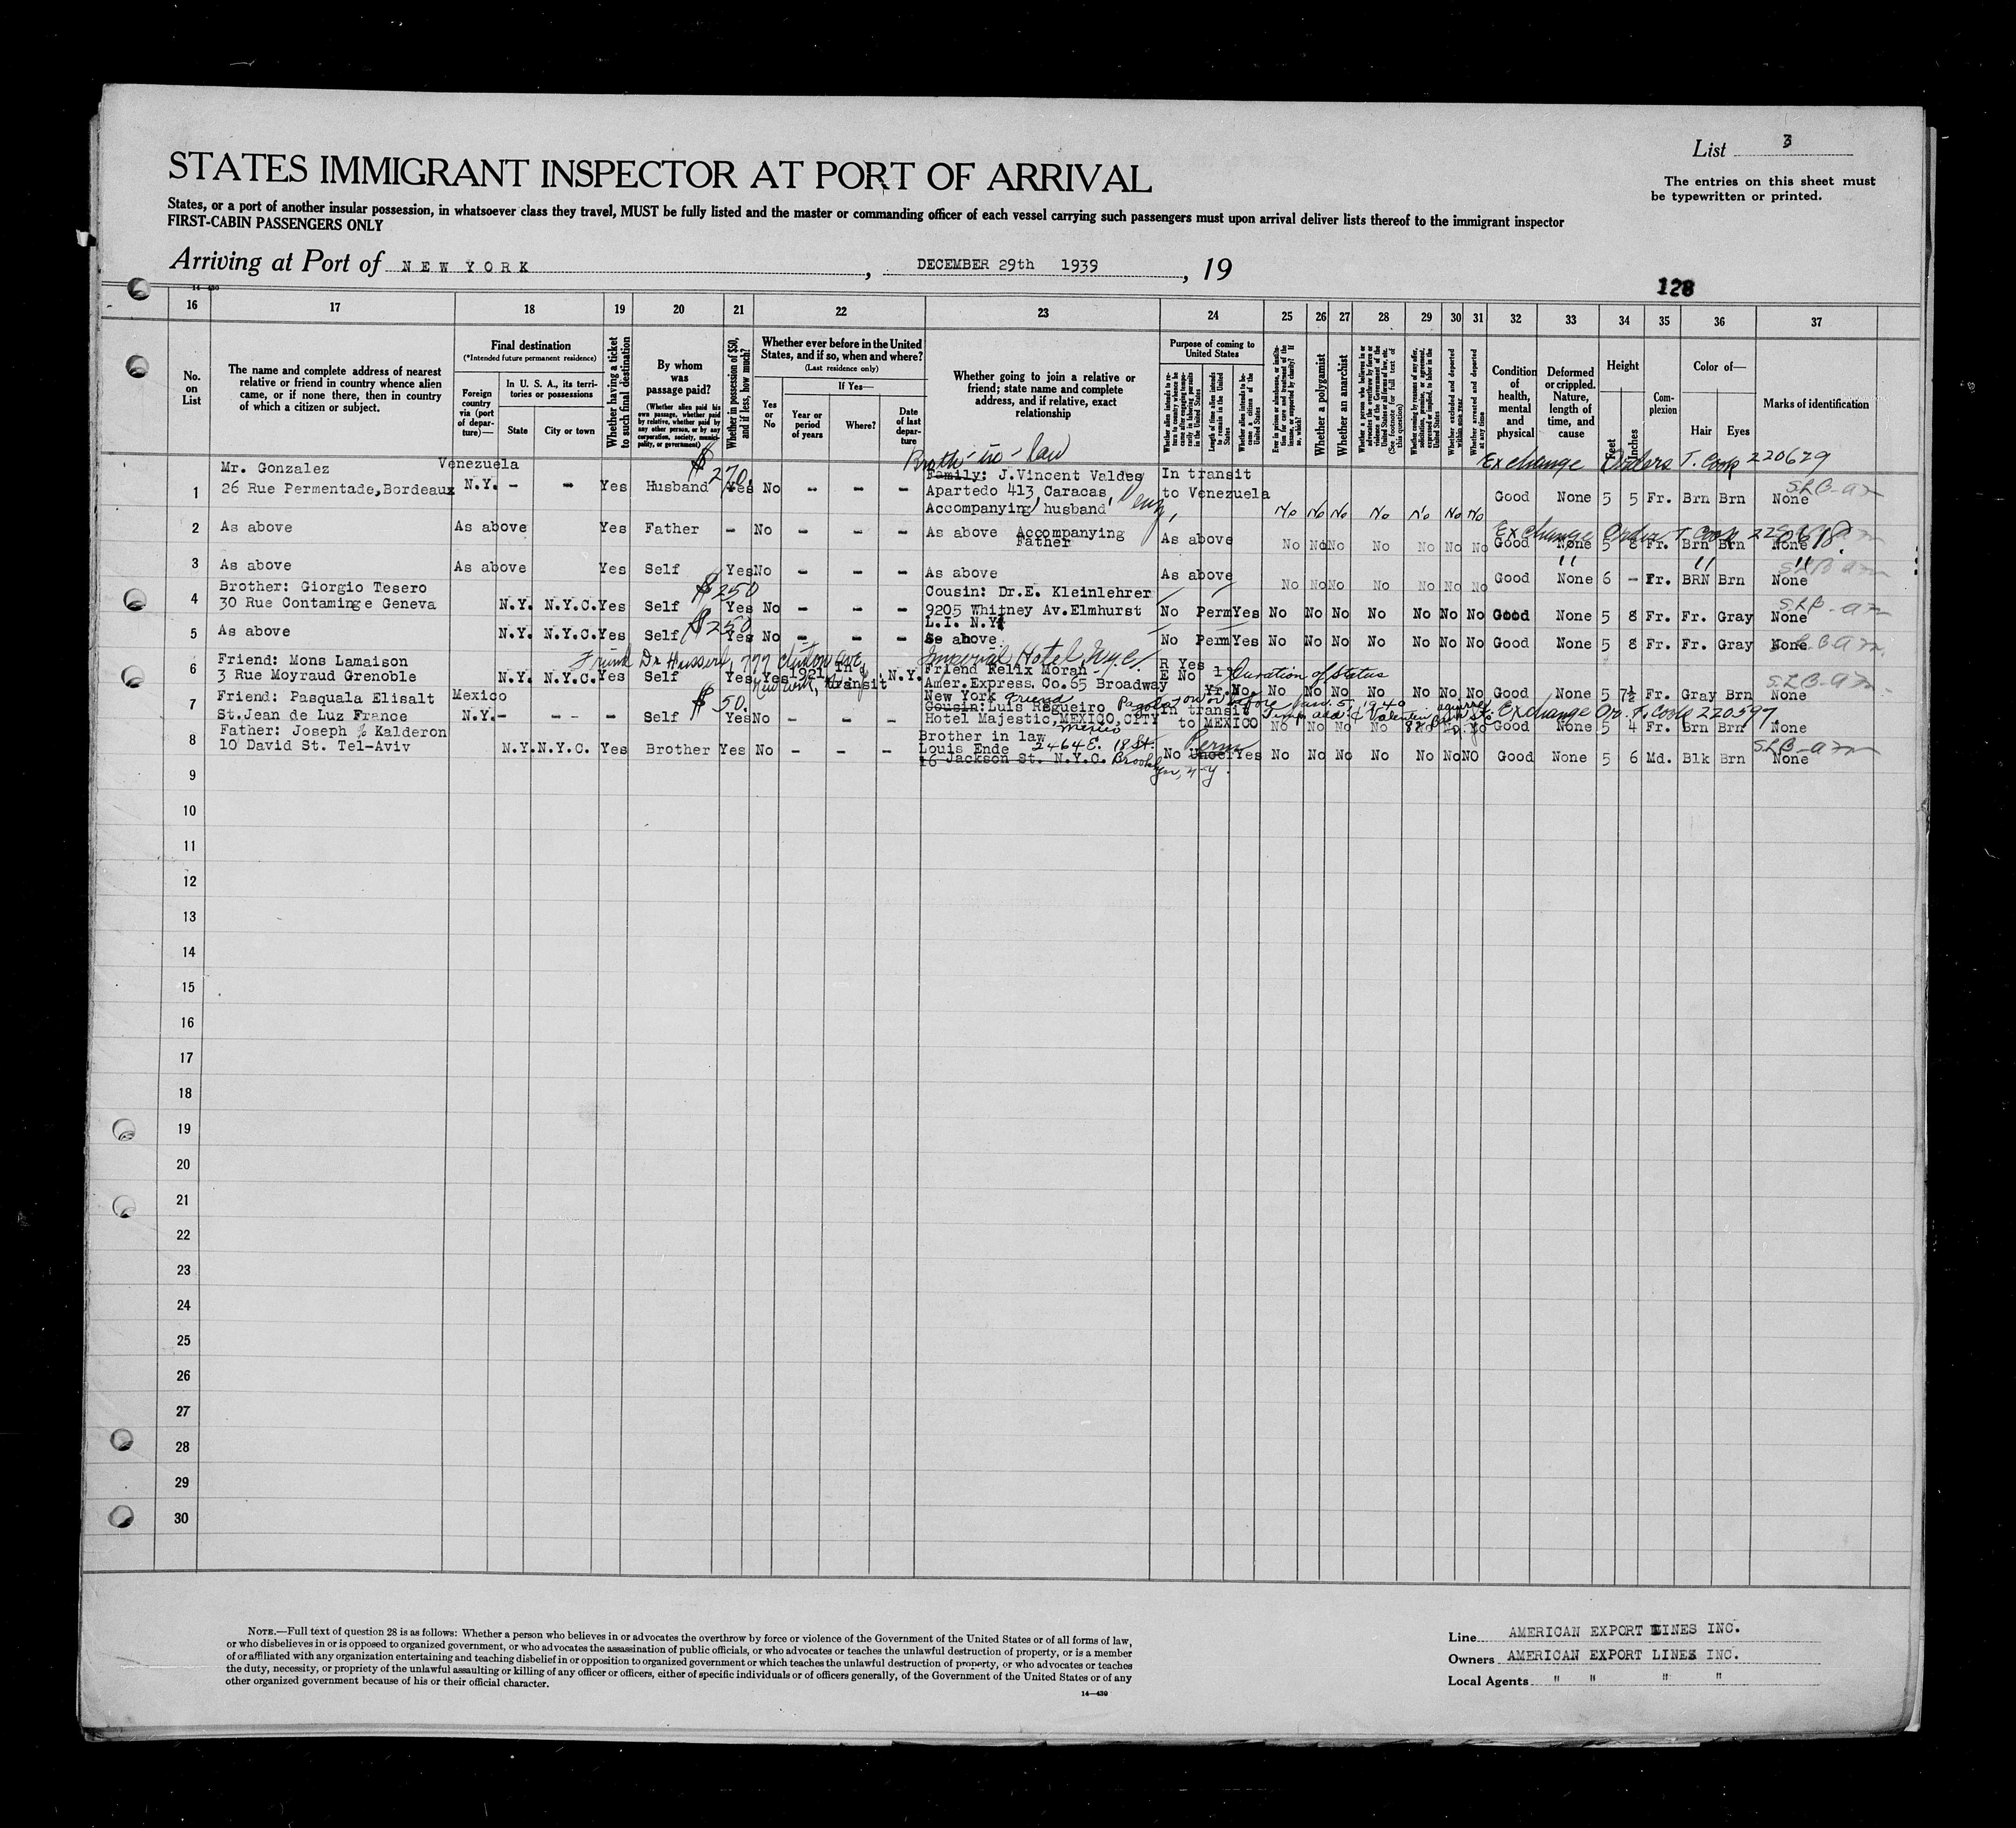 List 3
The entries on this sheet must
be typewritten or printed.
STATES IMMIGRANT INSPECTOR AT PORT OF ARRIVAL
States, or a port of another insular possession, in whatsoever class they travel, MUST be fully listed and the master or commanding officer of each vessel carrying such passengers must upon arrival deliver lists thereof to the immigrant inspector
FIRST-CABIN PASSENGERS ONLY
Arriving at Port of NEW YORK, DECEMBER 29th 1939, 19
128
16 17 18 19 20 21 22 23 24 25 26 27 28 29 30 31 32 33 34 35 36 37
No. on List
The name and complete address of nearest relative or friend in country whence alien came, or if none there, then in country of which a citizen or subject.
Final destination
(*Intended future permanent residence)
Foreign country via (port of departure)—
In U. S. A., its territories or possessions
State
City or town
Whether having a ticket to such final destination
By whom was passage paid?
(Whether alien paid his own passage, whether paid by relative, whether paid by any other person, or by any corporation, society, municipality, or government)
Whether in possession of $50, and if less, how much?
Whether ever before in the United States, and if so, when and where?
(Last residence only)
Yes or No
If Yes—
Year or period of years
Where?
Date of last departure
Whether going to join a relative or friend; state name and complete address, and if relative, exact relationship
Purpose of coming to United States
Length of time alien intends to remain in the United States
Whether alien intends to become a citizen of the United States
Whether a polygamist
Whether an anarchist
Whether excluded and deported within one year
Whether arrested and deported at any time
Condition of health, mental and physical
Deformed or crippled. Nature, length of time, and cause
Height
Feet
Inches
Complexion
Color of—
Hair
Eyes
Marks of identification
Broth-in-law
Exchange Orders T. Cook 220629
Mr. Gonzalez Venezuela $270 Family: J.Vincent Valdes In transit
1 26 Rue Permentade,Bordeaux N.Y. - - Yes Husband Yes No - - - Apartedo 413, Caracas, Venz, to Venezuela Good None 5 5 Fr. Brn Brn None
Accompanying husband No No No No No No No
2 As above As above Yes Father - No - - - As above Accompanying Father As above No No No No No No No Good None 5 8 Fr. Brn Brn None
3 As above As above Yes Self Yes No - - - As above As above No No No No No No No Good None 6 - Fr. BRN Brn None
Brother: Giorgio Tesero $250 Cousin: Dr.E. Kleinlehrer
4 30 Rue Contaminge Geneva N.Y. N.Y.C. Yes Self Yes No - - - 9205 Whitney Av.Elmhurst No Perm Yes No No No No No No No Good None 5 8 Fr. Fr. Gray None
L.I. N.Y.
5 As above N.Y. N.Y.C. Yes Self $250 Yes No - - - As above No Perm Yes No No No No No No No Good None 5 8 Fr. Fr. Gray None
Imperial Hotel N.Y.C.
Friend: Mons Lamaison Friend Felix Moran R Yes Duration of status
6 3 Rue Moyraud Grenoble N.Y. N.Y.C. Yes Self Yes Yes 1921 in transit N.Y. Amer.Express. Co.65 Broadway E No 1 Yr. No. No No No No No No No Good None 5 7½ Fr. Gray Brn None
New York
Friend: Pasquala Elisalt Mexico $50. Cousin: Friend Luis Regueiro In transit
7 St.Jean de Luz France N.Y. - - - Self Yes No - - - Hotel Majestic,MEXICO,CITY Mexico to MEXICO No No No No No Good None 5 4 Fr. Brn Brn None
Exchange Or. T. Cook 220597
Father: Joseph % Kalderon Brother in law
8 10 David St. Tel-Aviv N.Y. N.Y.C. Yes Brother Yes No - - - Louis Ende 2464 E. 18 St. Perm No Yes No No No No No No NO Good None 5 6 Md. Blk Brn None
16 Jackson St. N.Y.C. Brooklyn, N.Y.
9
10
11
12
13
14
15
16
17
18
19
20
21
22
23
24
25
26
27
28
29
30
NOTE.—Full text of question 28 is as follows: Whether a person who believes in or advocates the overthrow by force or violence of the Government of the United States or of all forms of law,
or who disbelieves in or is opposed to organized government, or who advocates the assassination of public officials, or who advocates or teaches the unlawful destruction of property, or is a member
of or affiliated with any organization entertaining and teaching disbelief in or opposition to organized government or which teaches the unlawful destruction of property, or who advocates or teaches
the duty, necessity, or propriety of the unlawful assaulting or killing of any officer or officers, either of specific individuals or of officers generally, of the Government of the United States or of any
other organized government because of his or their official character.
14—430
Line AMERICAN EXPORT LINES INC.
Owners AMERICAN EXPORT LINES INC.
Local Agents " " " "